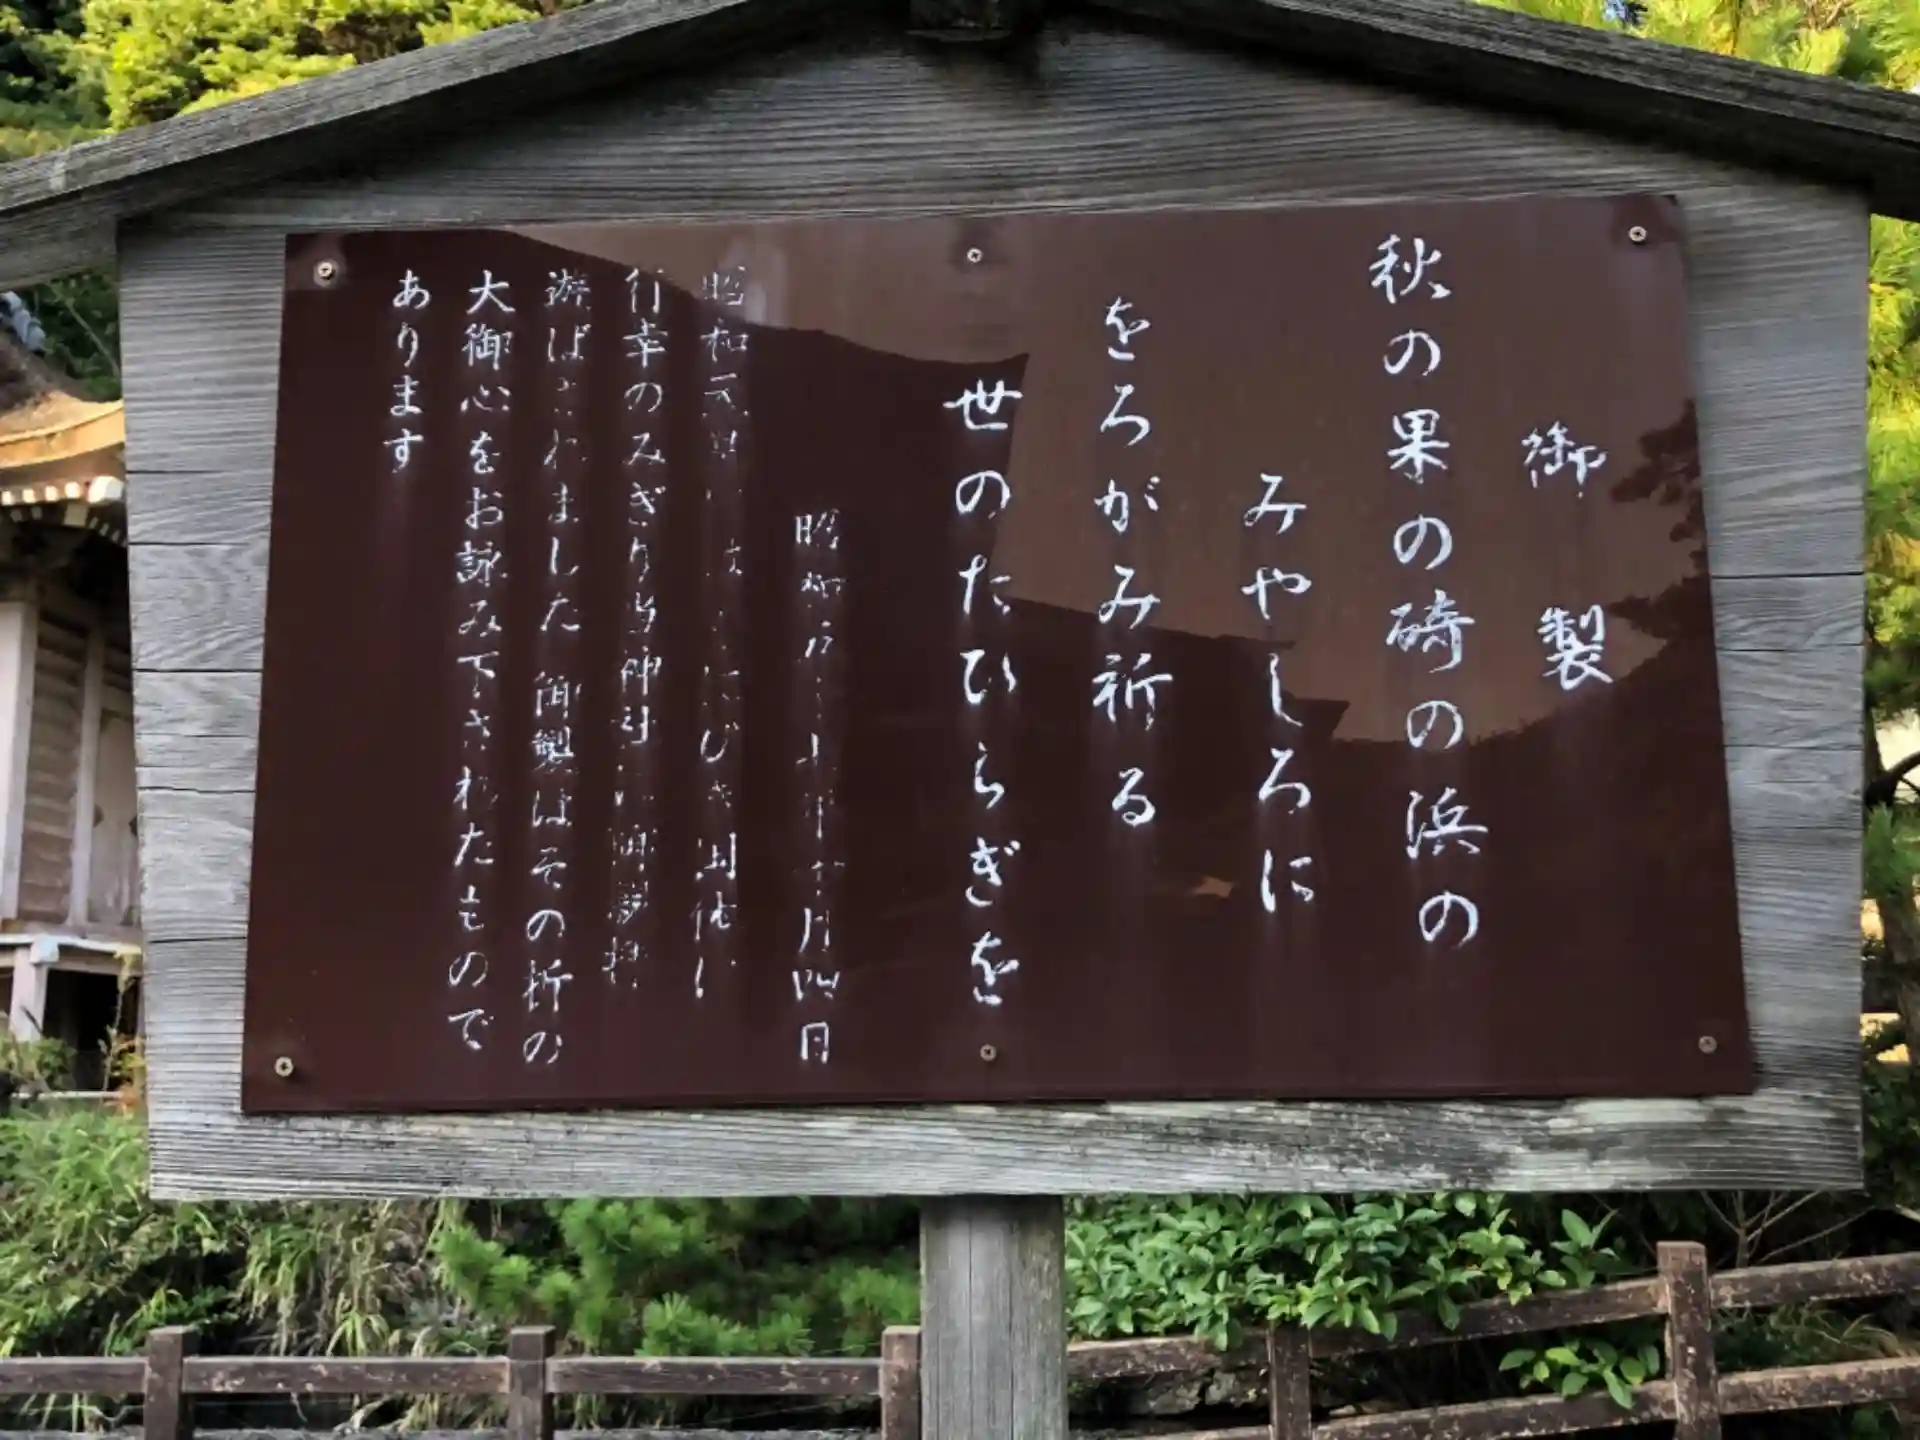 御製
秋の果の碕の浜の
みやしろに
をろがみ祈る
世のたひらぎを
昭和 年 月四日
昭和天皇に び 行
行幸のみぎり当神社に御参拝
遊ばされました 御製はその折の
大御心をお詠み下されたもので
あります